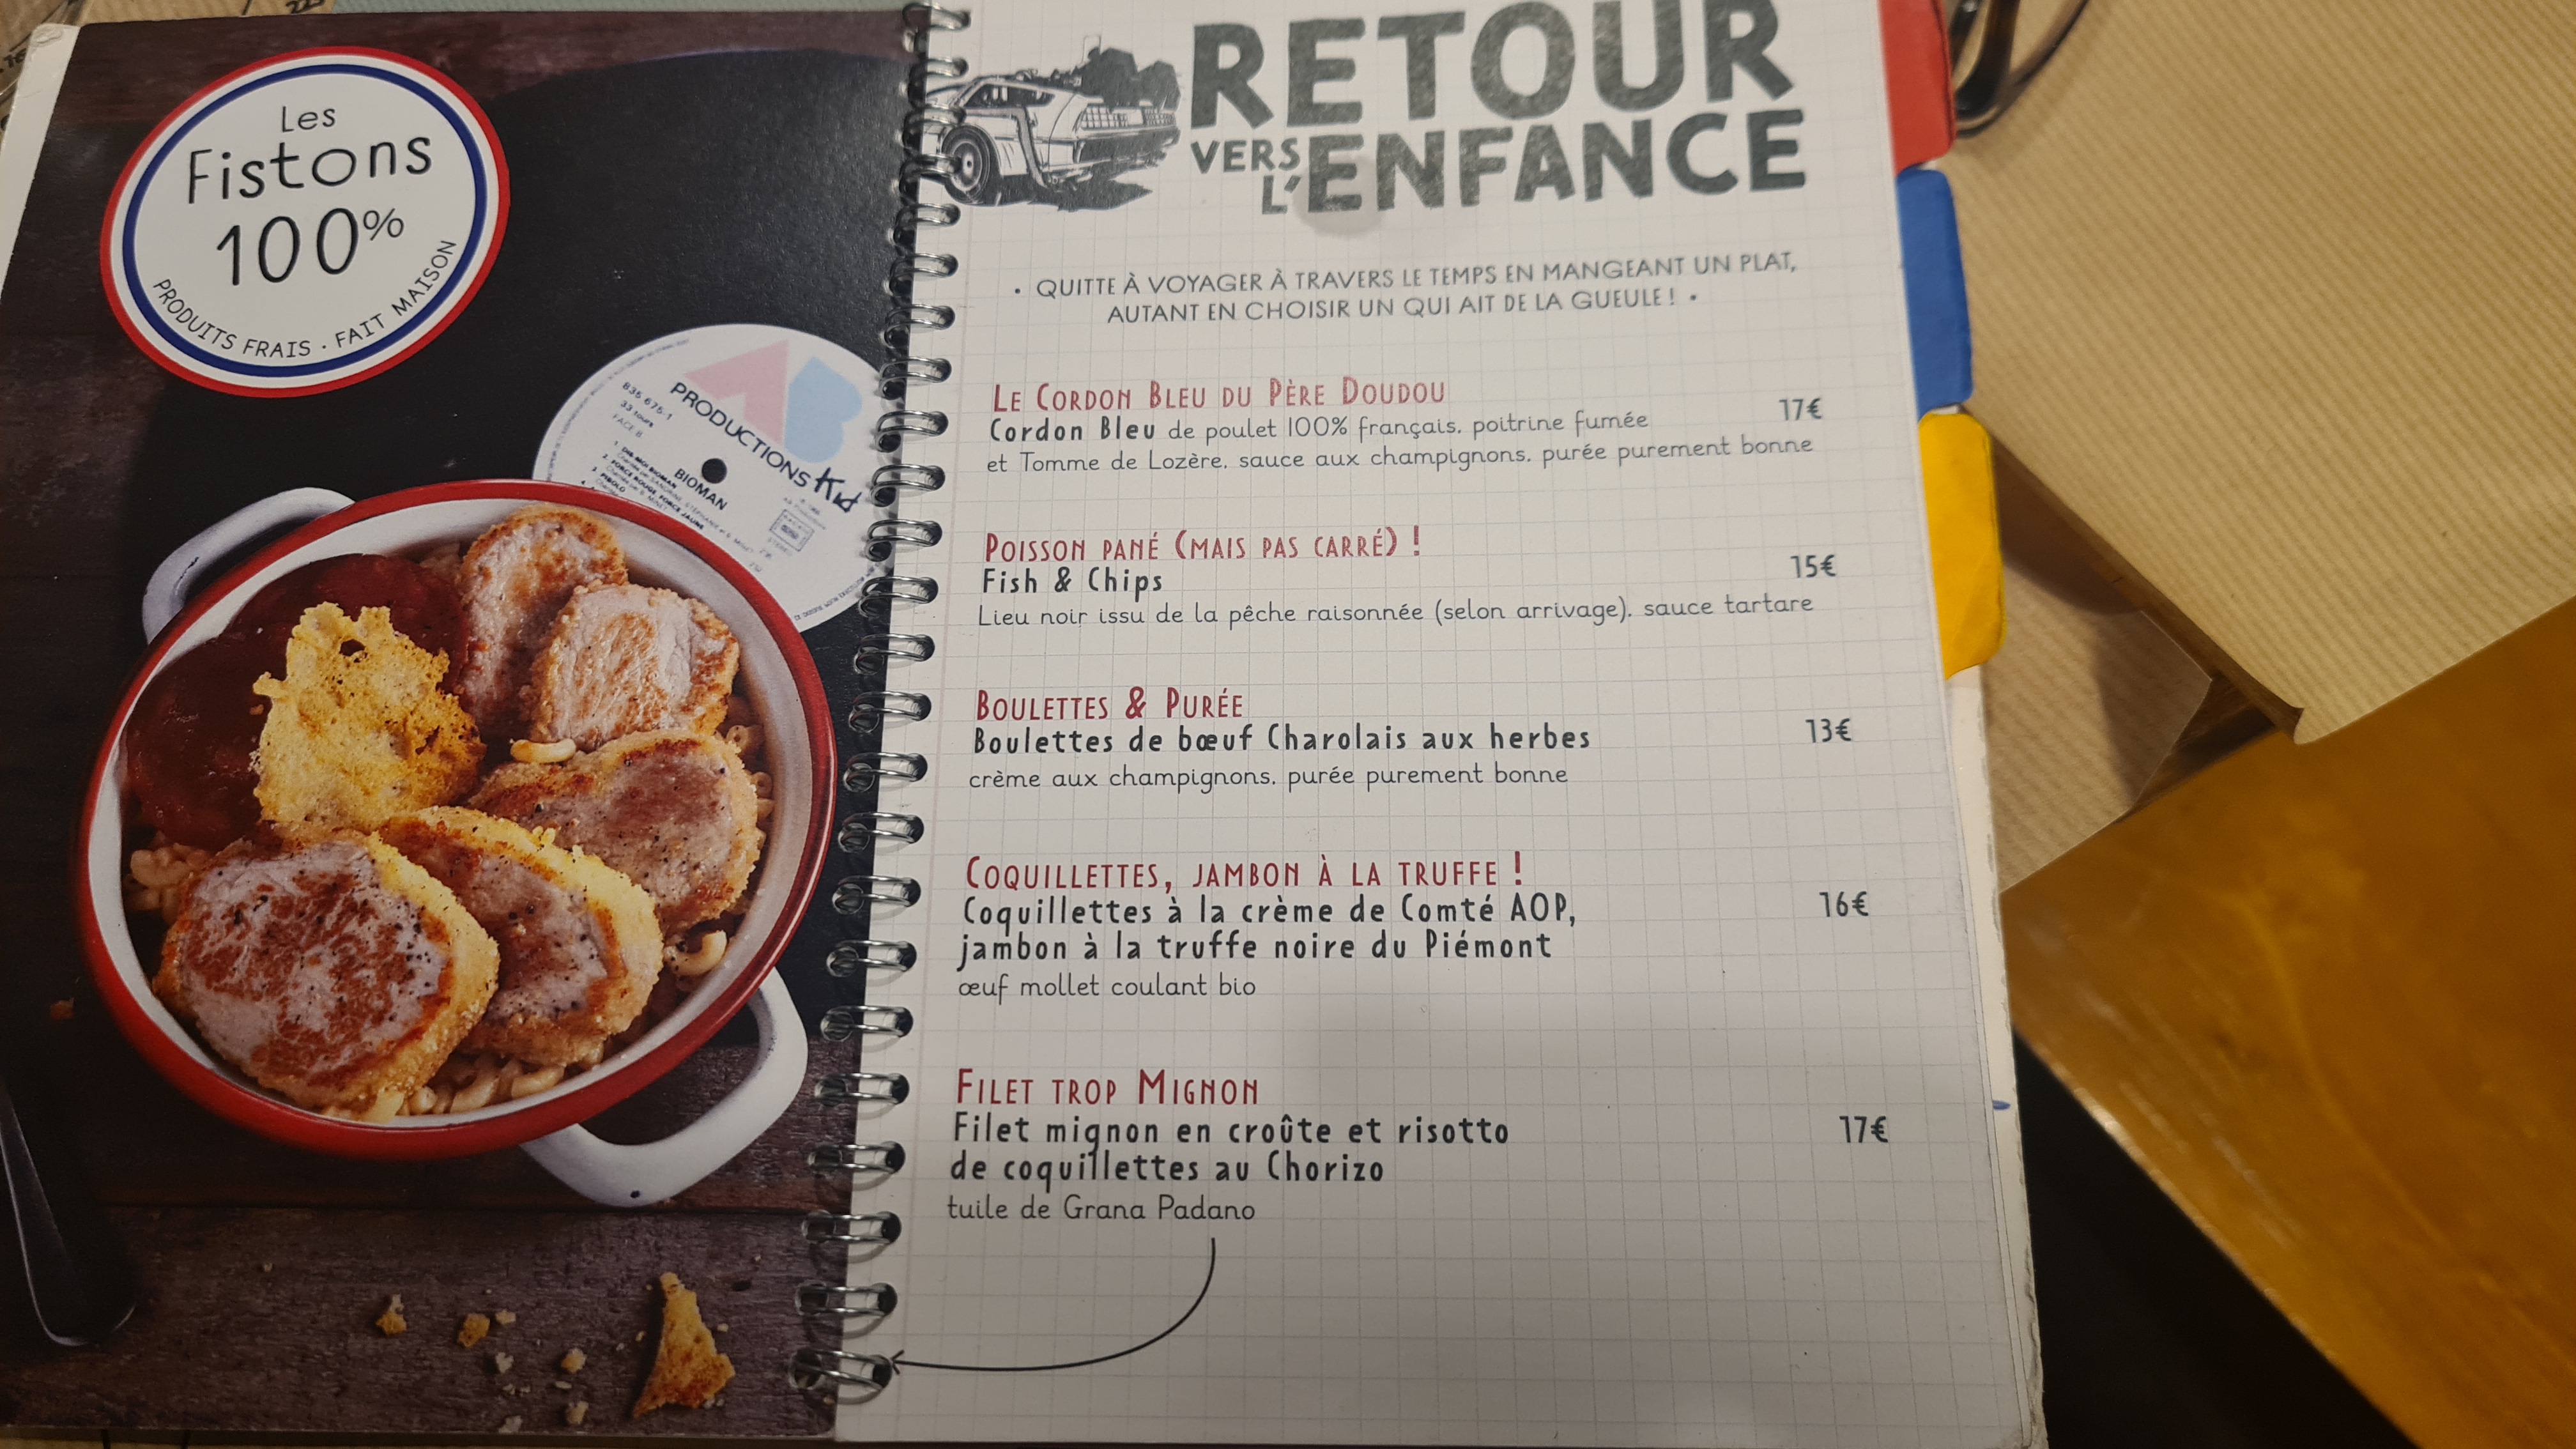 Les
Fistons
100%
PRODUITS FRAIS · FAIT MAISON
AB
PRODUCTIONS Kid
835 675-1
33 TOURS
FACE B
BIOMAN
RETOUR
VERS
L'ENFANCE
• QUITTE À VOYAGER À TRAVERS LE TEMPS EN MANGEANT UN PLAT,
AUTANT EN CHOISIR UN QUI AIT DE LA GUEULE ! •
LE CORDON BLEU DU PÈRE DOUDOU
Cordon Bleu de poulet 100% français, poitrine fumée 17€
et Tomme de Lozère, sauce aux champignons, purée purement bonne
POISSON PANÉ (MAIS PAS CARRÉ) !
Fish & Chips 15€
Lieu noir issu de la pêche raisonnée (selon arrivage), sauce tartare
BOULETTES & PURÉE
Boulettes de bœuf Charolais aux herbes 13€
crème aux champignons, purée purement bonne
COQUILLETTES, JAMBON À LA TRUFFE !
Coquillettes à la crème de Comté AOP, 16€
jambon à la truffe noire du Piémont
œuf mollet coulant bio
FILET TROP MIGNON
Filet mignon en croûte et risotto 17€
de coquillettes au Chorizo
tuile de Grana Padano